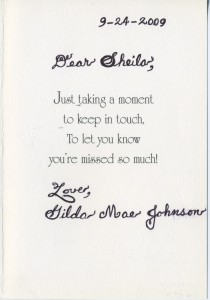 9-24-2009
Dear Sheila,
Just taking a moment
to keep in touch,
To let you know
you're missed so much!
Love,
Gilda Mae Johnson